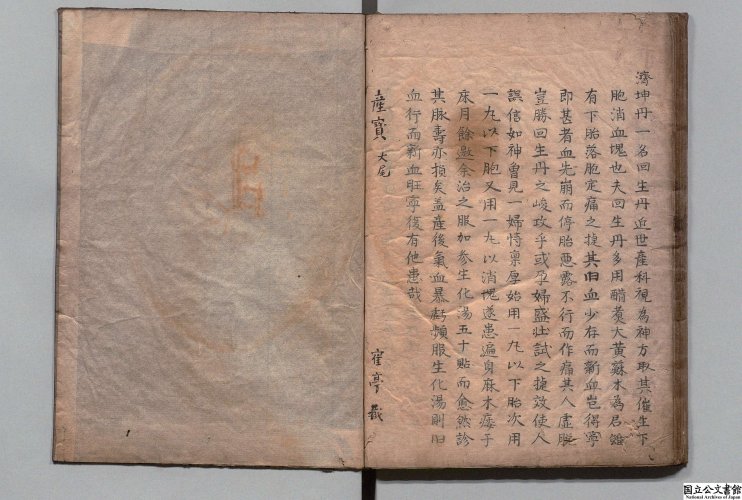 濟坤丹一名回生丹近世産科視為神方取其催生下
胞消血塊也夫回生丹多用醋煑大黄蘇木為君雖
有下胎落胞定痛之捷其旧血少存而新血豈得寧
即甚者血先崩而停胎惡露不行而作痛其人虚脫
豈勝回生丹之峻攻乎或孕婦盛壮試之捷效使人
誤信如神曽見一婦恃禀厚始用一丸以下胎次用
一丸以下胞又用一丸以消塊遂患遍身麻木痿于
床月餘邀余治之服加参生化湯五十貼而愈然診
其脉壽亦損矣益産後氣血暴虧頻服生化湯則旧
血行而新血旺寧復有他患哉
産寳 大尾
亭
1
国立公文書館
National Archives of Japan